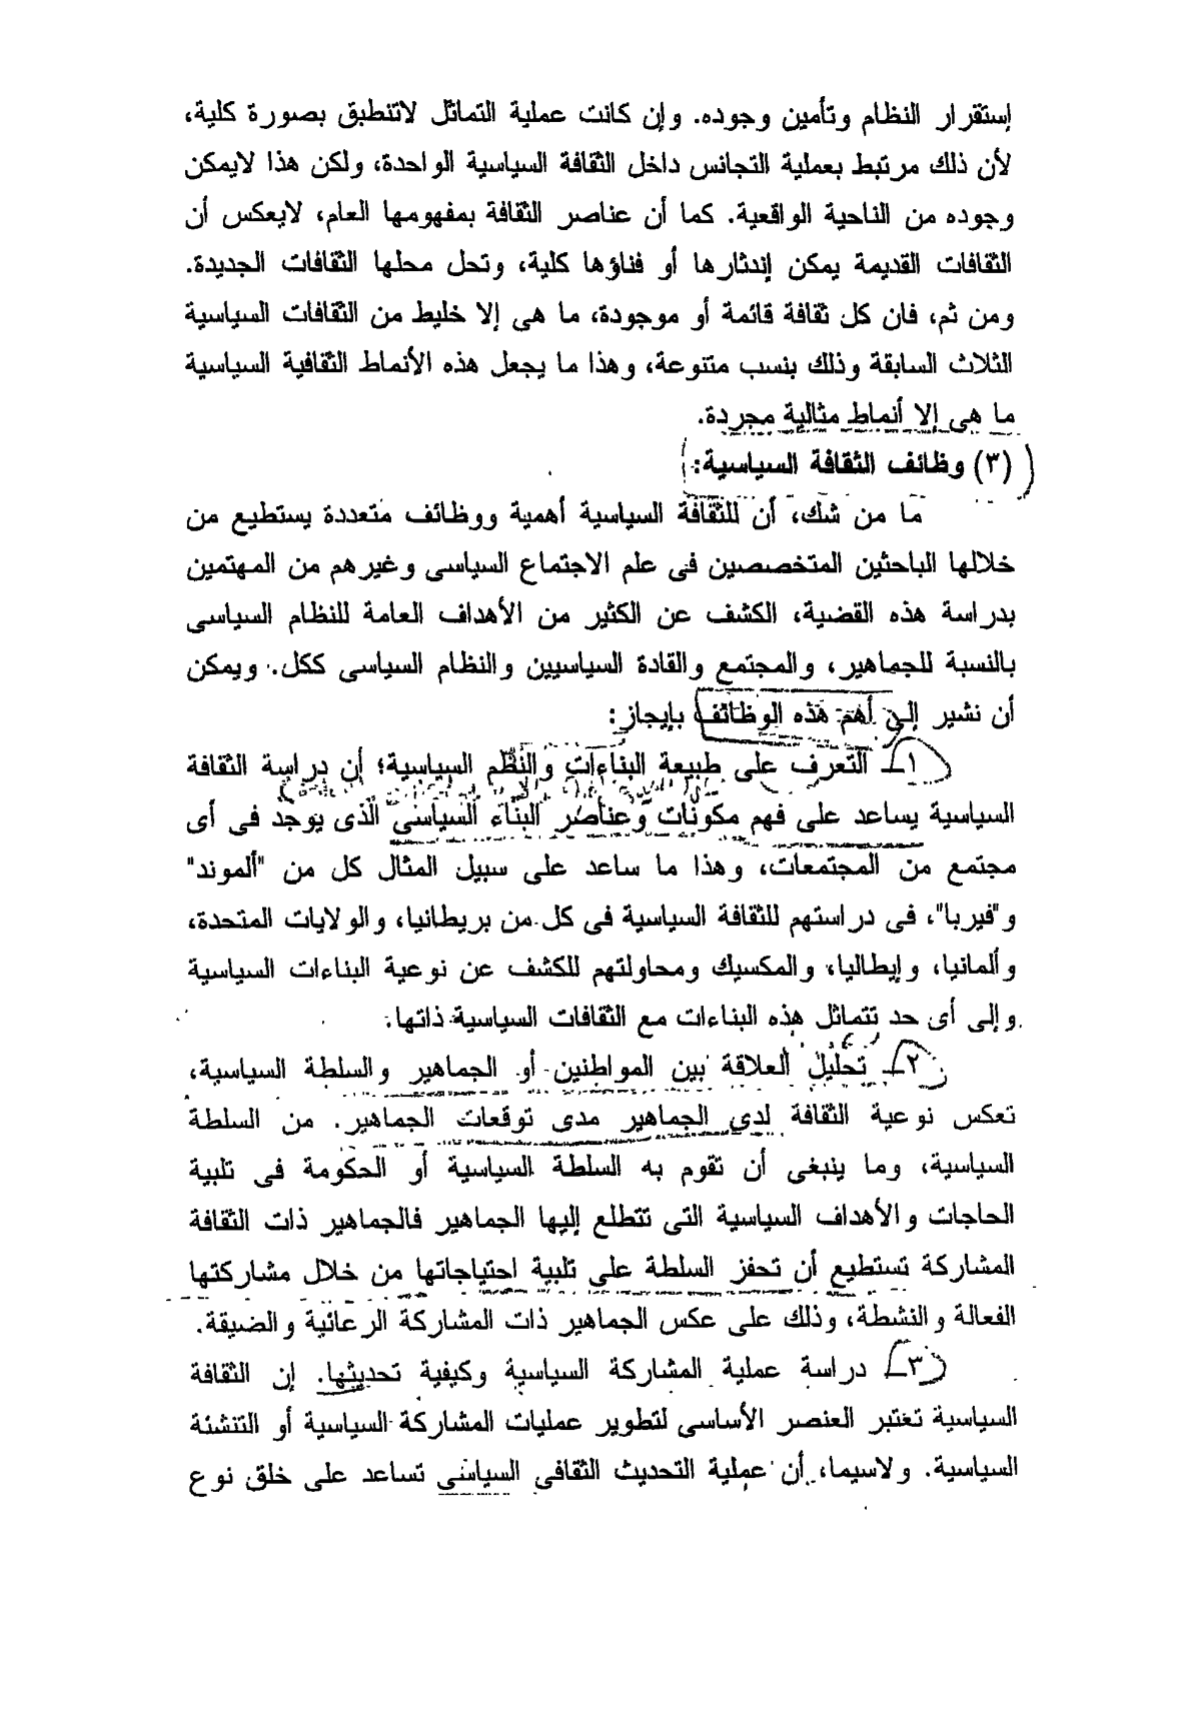 إستقرار النظام وتأمين وجوده. وإن كانت عملية التماثل لاتنطبق بصورة كلية،
لأن ذلك مرتبط بعملية التجانس داخل الثقافة السياسية الواحدة، ولكن هذا لايمكن
وجوده من الناحية الواقعية. كما أن عناصر الثقافة بمفهومها العام، لايعكس أن
الثقافات القديمة يمكن إندثارها أو فناؤها كلية، وتحل محلها الثقافات الجديدة.
ومن ثم، فان كل ثقافة قائمة أو موجودة، ما هى إلا خليط من الثقافات السياسية
الثلاث السابقة وذلك بنسب متنوعة، وهذا ما يجعل هذه الأنماط الثقافية السياسية
ما هى إلا أنماط مثالية مجردة.
(٣) وظائف الثقافة السياسية:
ما من شك، أن للثقافة السياسية أهمية ووظائف متعددة يستطيع من
خلالها الباحثين المتخصصين فى علم الاجتماع السياسى وغيرهم من المهتمين
بدراسة هذه القضية، الكشف عن الكثير من الأهداف العامة للنظام السياسى
بالنسبة للجماهير، والمجتمع والقادة السياسيين والنظام السياسى ككل. ويمكن
أن نشير إلى أهم هذه الوظائف بإيجاز:
١ـ التعرف على طبيعة البناءات والنظم السياسية؛ أن دراسة الثقافة
السياسية يساعد على فهم مكونات وعناصر البناء السياسى الذى يوجد فى أى
مجتمع من المجتمعات، وهذا ما ساعد على سبيل المثال كل من "ألموند"
و"فيربا"، فى دراستهم للثقافة السياسية فى كل من بريطانيا، والولايات المتحدة،
وألمانيا، وإيطاليا، والمكسيك ومحاولتهم للكشف عن نوعية البناءات السياسية
وإلى أى حد تتماثل هذه البناءات مع الثقافات السياسية ذاتها.
٢ـ تحليل العلاقة بين المواطنين أو الجماهير والسلطة السياسية،
تعكس نوعية الثقافة لدى الجماهير مدى توقعات الجماهير. من السلطة
السياسية، وما ينبغى أن تقوم به السلطة السياسية أو الحكومة فى تلبية
الحاجات والأهداف السياسية التى تتطلع إليها الجماهير فالجماهير ذات الثقافة
المشاركة تستطيع أن تحفز السلطة على تلبية احتياجاتها من خلال مشاركتها
الفعالة والنشطة، وذلك على عكس الجماهير ذات المشاركة الرعائية والضيقة.
٣ـ دراسة عملية المشاركة السياسية وكيفية تحديثها. إن الثقافة
السياسية تعتبر العنصر الأساسى لتطوير عمليات المشاركة السياسية أو التنشئة
السياسية. ولاسيما، أن عملية التحديث الثقافى السياسى تساعد على خلق نوع